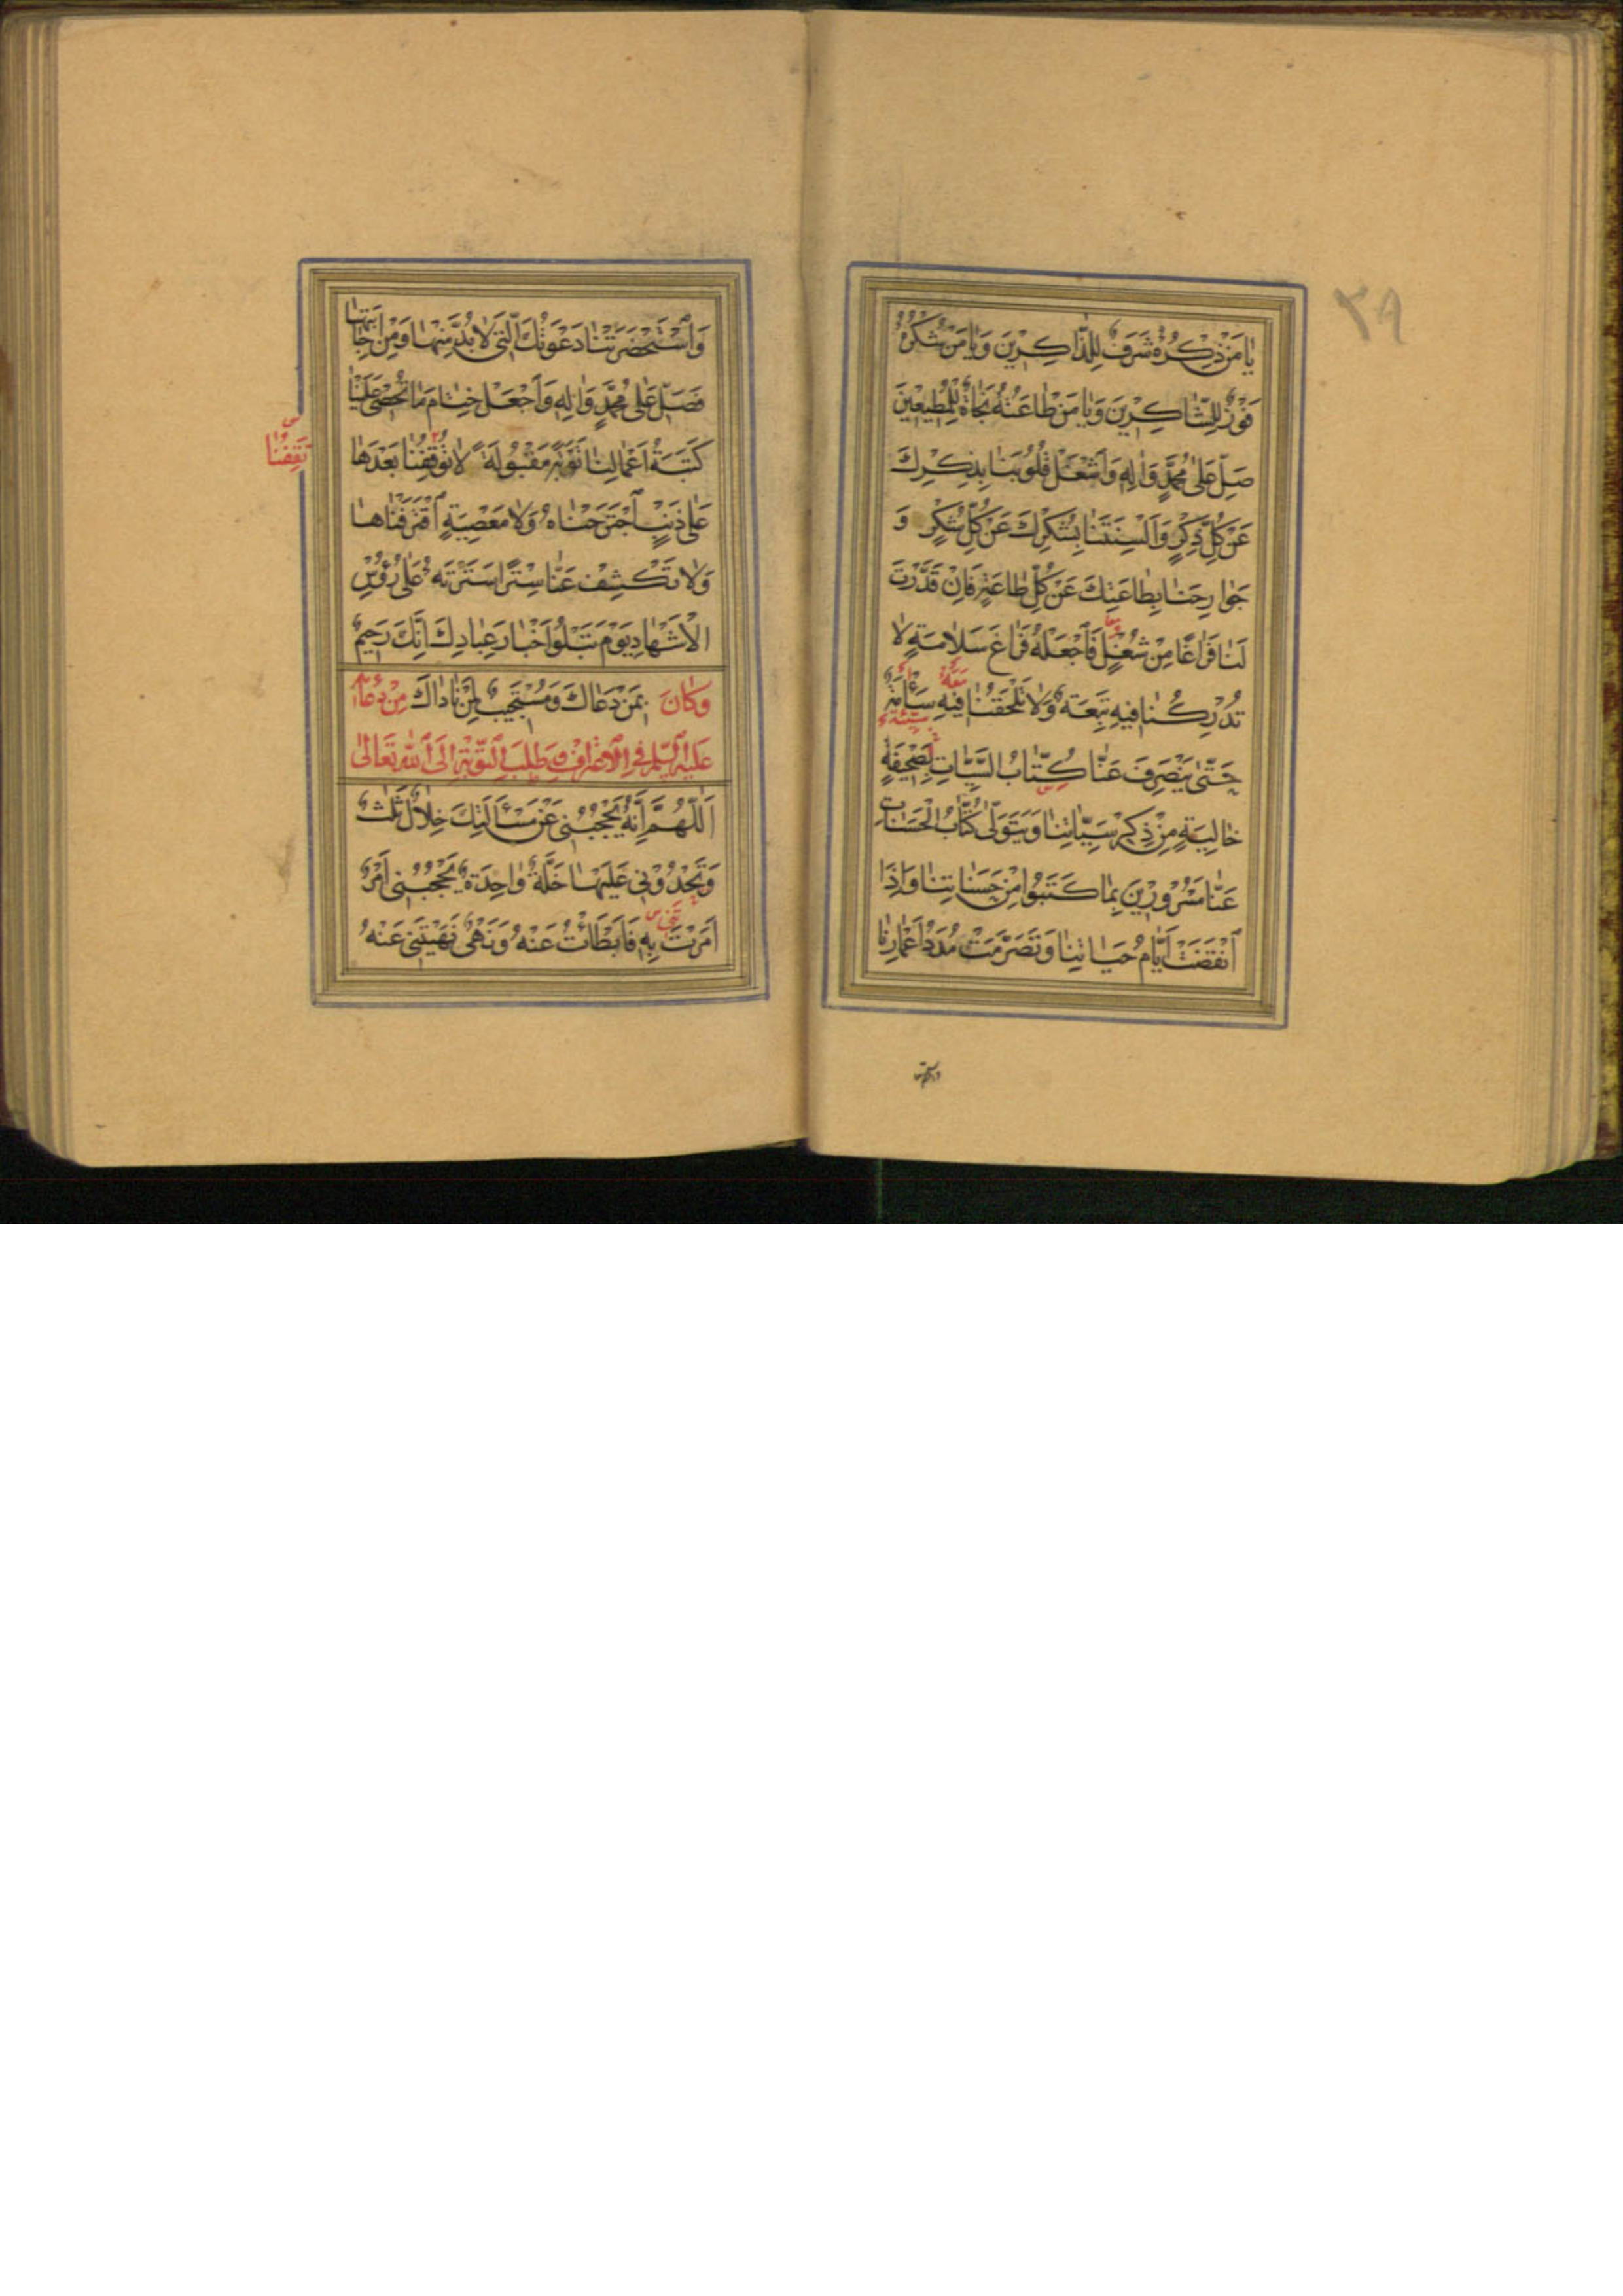 ٣٩
يٰا مَنْ ذِكْرُهُ شَرَفٌ لِلذّٰاكِرِيْنَ وَيٰا مَنْ شُكْرُهُ
فَوْزٌ لِلشّٰاكِرِيْنَ وَيٰا مَنْ طٰاعَتُهُ نَجٰاةٌ لِلْمُطيعِينَ
صَلِّ عَلىٰ مُحَمَّدٍ وَاٰلِهِ وَاشْغَلْ قُلُوبَنٰا بِذِكْرِكَ
عَنْ كُلِّ ذِكْرٍ وَاَلْسِنَتَنٰا بِشُكْرِكَ عَنْ كُلِّ شُكْرٍ وَ
جَوٰارِحَنٰا بِطٰاعَتِكَ عَنْ كُلِّ طٰاعَةٍ فَاِنْ قَدَّرْتَ
لَنٰا فَرٰاغًا مِنْ شُغْلٍ فَاجْعَلْهُ فَرٰاغَ سَلٰامَةٍ لٰا
تُدْرِكُنٰا فيهِ تَبِعَةٌ وَلٰا تَلْحَقُنٰا فيهِ سَاٰمَةٌ
حَتّىٰ يَنْصَرِفَ عَنّٰا كُتّٰابُ السَّيِّاٰتِ بِصَحيفَةٍ
خٰالِيَةٍ مِنْ ذِكْرِ سَيِّاٰتِنٰا وَيَتَوَلّىٰ كُتّٰابُ الْحَسَنٰاتِ
عَنّٰا مَسْرُورِيْنَ بِمٰا كَتَبُوا مِنْ حَسَنٰاتِنٰا وَاِذَا
انْقَضَتْ اَيّٰامُ حَيٰاتِنٰا وَتَصَرَّمَتْ مُدَدُ اَعْمٰارِنٰا
وَاسْتَحْضَرَتْنٰا دَعْوَتُكَ الَّتي لٰا بُدَّ مِنْهٰا وَمِنْ اِجٰابَتِهٰا
فَصَلِّ عَلىٰ مُحَمَّدٍ وَاٰلِهِ وَاجْعَلْ خِتٰامَ مٰا تُحْصي عَلَيْنٰا
كَتَبَةُ اَعْمٰالِنٰا تَوْبَةً مَقْبُولَةً لٰا تُوقِفُنٰا بَعْدَهٰا
تَقِفُنٰا
عَلىٰ ذَنْبٍ اجْتَرَحْنٰاهُ وَلٰا مَعْصِيَةٍ اقْتَرَفْنٰاهٰا
وَلٰا تَكْشِفْ عَنّٰا سِتْرًا سَتَرْتَهُ عَلىٰ رُؤُسِ
الْاَشْهٰادِ يَوْمَ تَبْلُوا اَخْبٰارَ عِبٰادِكَ اِنَّكَ رَحيمٌ
بِمَنْ دَعٰاكَ وَمُسْتَجيبٌ لِمَنْ نٰادٰاكَ وَكٰانَ مِنْ دُعٰائِهِ
عَلَيْهِ السَّلٰمُ فِي الْاِعْتِرٰافِ وَطَلَبِ التَّوْبَةِ اِلَى اللّٰهِ تَعٰالىٰ
اَللّٰهُمَّ اِنَّهُ يَحْجُبُني عَنْ مَسْأَلَتِكَ خِلٰالٌ ثَلٰثٌ
وَتَحْدُوني عَلَيْهٰا خَلَّةٌ وٰاحِدَةٌ يَحْجُبُني اَمْرٌ
اَمَرْتَ بِهِ فَاَبْطَأْتُ عَنْهُ وَنَهْيٌ نَهَيْتَني عَنْهُ